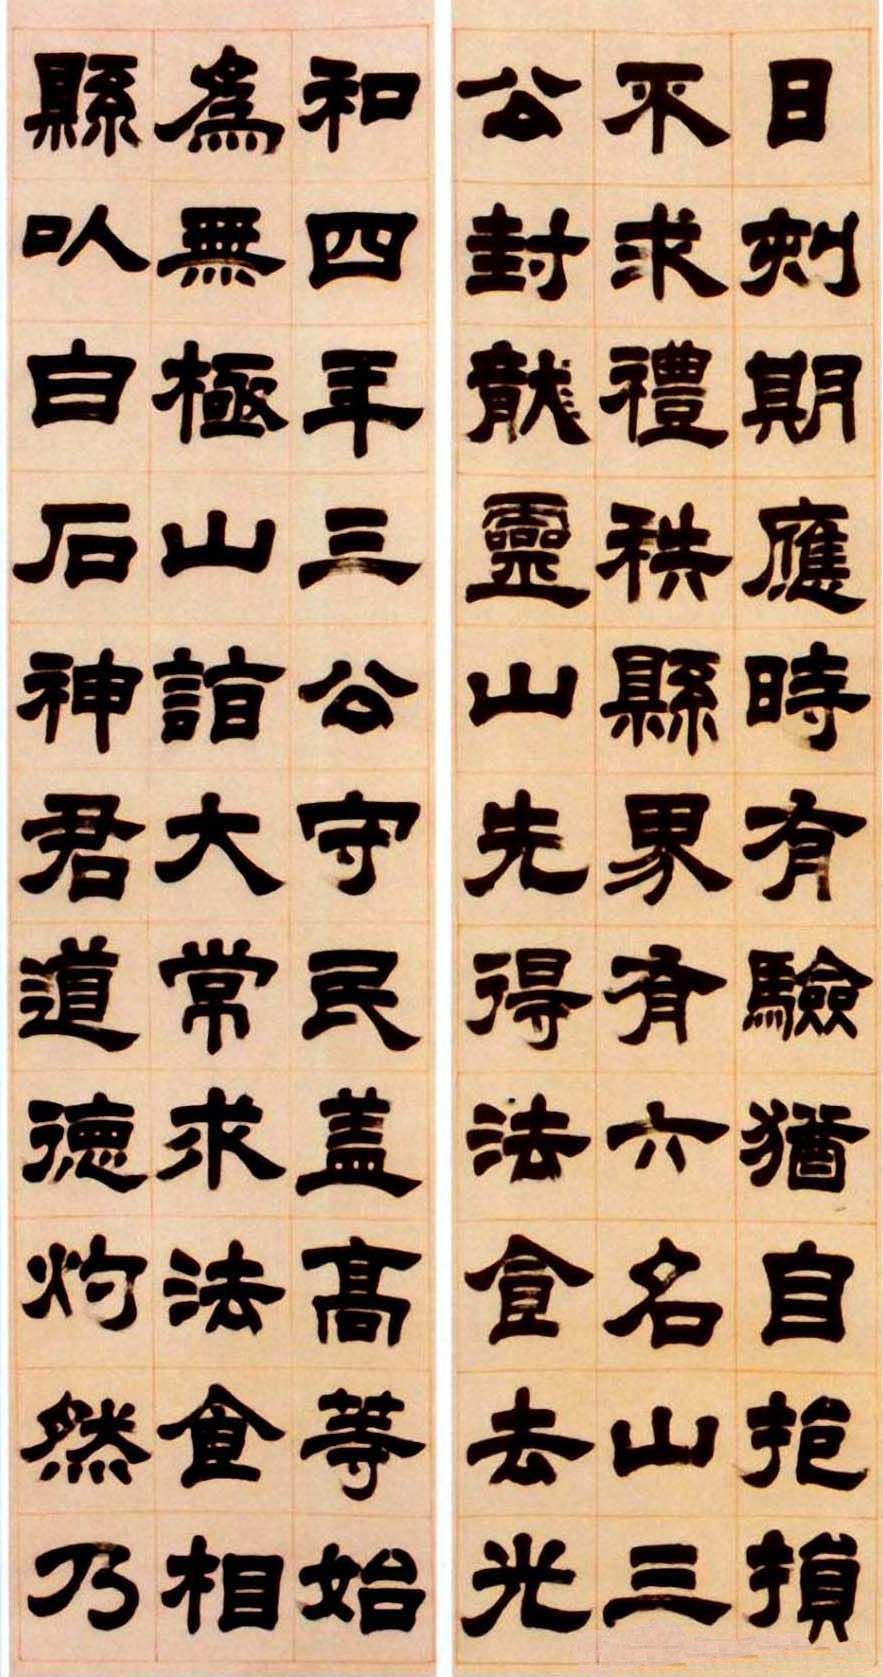 日刻期應時有驗猶自挹損
不求禮秩縣界有六名山三
公封龍靈山先得法食去光
和四年三公守民蓋高等始
為無極山詣大常求法食相
縣以白石神君道德灼然乃